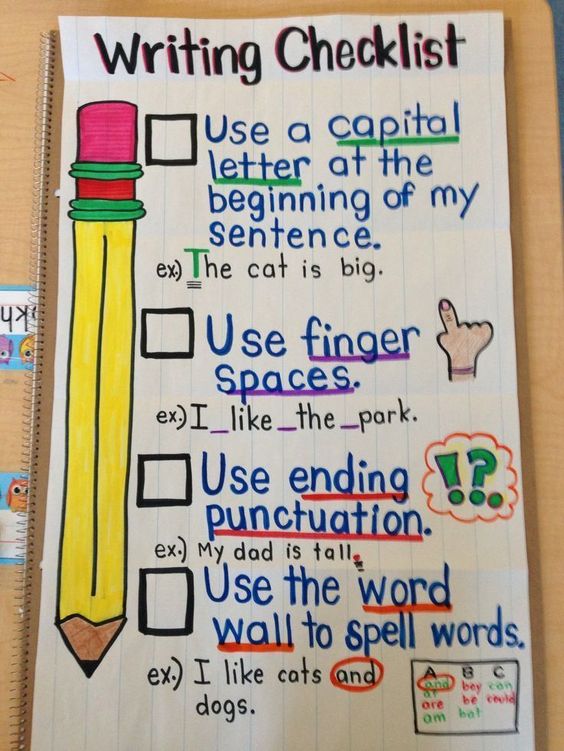 Writing Checklist
Use a capital
letter at the
beginning of my
sentence.
ex.) The cat is big.
Use finger
spaces.
ex.) I_like_the_park.
Use ending
punctuation.
!.?
ex.) My dad is tall.
Use the word
wall to spell words.
ex.) I like cats and
dogs.
A B C
and boy can
at be could
are bat
am